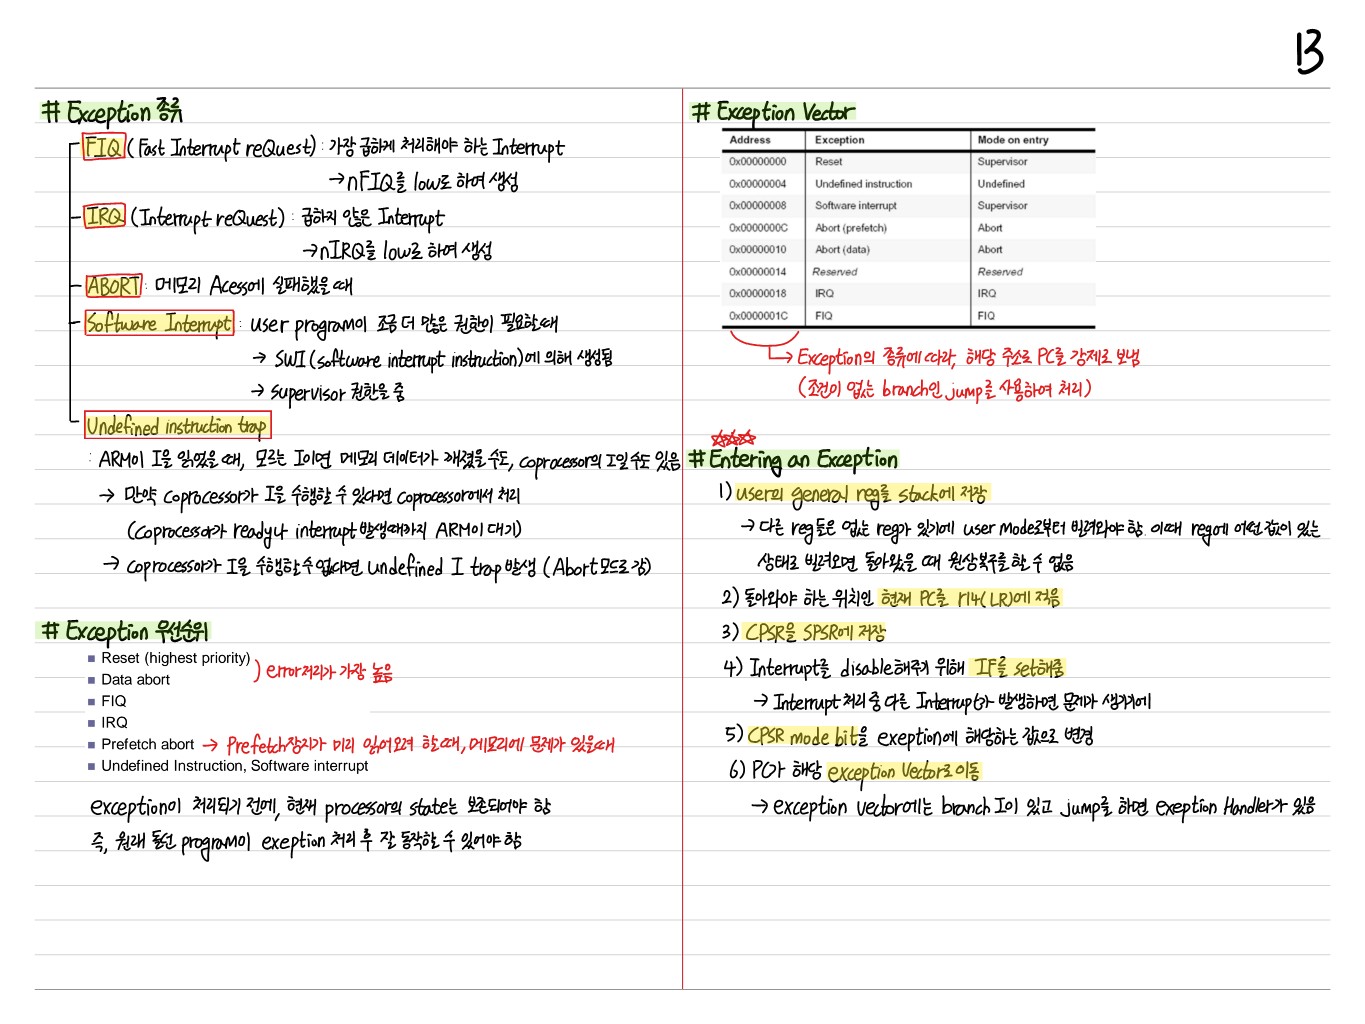 13
# Exception 종류
FIQ (Fast Interrupt reQuest) : 가장 급하게 처리해야 하는 Interrupt
→ nFIQ를 low로 하여 생성
IRQ (Interrupt reQuest) : 급하지 않은 Interrupt
→ nIRQ를 low로 하여 생성
ABORT : 메모리 Acess에 실패했을 때
Software Interrupt : user program이 조금 더 많은 권한이 필요할 때
→ SWI (software interrupt instruction)에 의해 생성됨
→ supervisor 권한을 줌
Undefined instruction trap
: ARM이 I을 읽었을 때, 모르는 I이면 메모리 데이터가 깨졌을 수도, coprocessor의 I일 수도 있음
→ 만약 coprocessor가 I을 수행할 수 있다면 coprocessor에서 처리
(coprocessor가 ready나 interrupt 발생때까지 ARM이 대기)
→ coprocessor가 I을 수행할 수 없다면 undefined I trap 발생 (Abort 모드로 감)
# Exception 우선순위
■ Reset (highest priority)
■ Data abort
) error처리가 가장 높음
■ FIQ
■ IRQ
■ Prefetch abort → Prefetch장치가 미리 읽어오려 할 때, 메모리에 문제가 있을 때
■ Undefined Instruction, Software interrupt
exception이 처리되기 전에, 현재 processor의 state는 보존되어야 함
즉, 원래 돌던 program이 exeption 처리 후 잘 동작할 수 있어야 함
# Exception Vector
Address Exception Mode on entry
0x00000000 Reset Supervisor
0x00000004 Undefined instruction Undefined
0x00000008 Software interrupt Supervisor
0x0000000C Abort (prefetch) Abort
0x00000010 Abort (data) Abort
0x00000014 Reserved Reserved
0x00000018 IRQ IRQ
0x0000001C FIQ FIQ
→ Exception의 종류에 따라, 해당 주소로 PC를 강제로 보냄
(조건이 없는 branch인 jump를 사용하여 처리)
☆☆☆
# Entering an Exception
1) user의 general reg를 stack에 저장
→ 다른 reg들은 없는 reg가 있기에 user mode로부터 빌려와야 함. 이때 reg에 어떤 값이 있는
상태로 빌려오면 돌아왔을 때 원상복구를 할 수 없음
2) 돌아와야 하는 위치인 현재 PC를 r14(LR)에 적음
3) CPSR을 SPSR에 저장
4) Interrupt를 disable해주기 위해 IF를 set해줌
→ Interrupt 처리 중 다른 Interrupt가 발생하면 문제가 생기기에
5) CPSR mode bit을 exeption에 해당하는 값으로 변경
6) PC가 해당 exception vector로 이동
→ exception vector에는 branch I이 있고 jump를 하면 exeption Handler가 있음